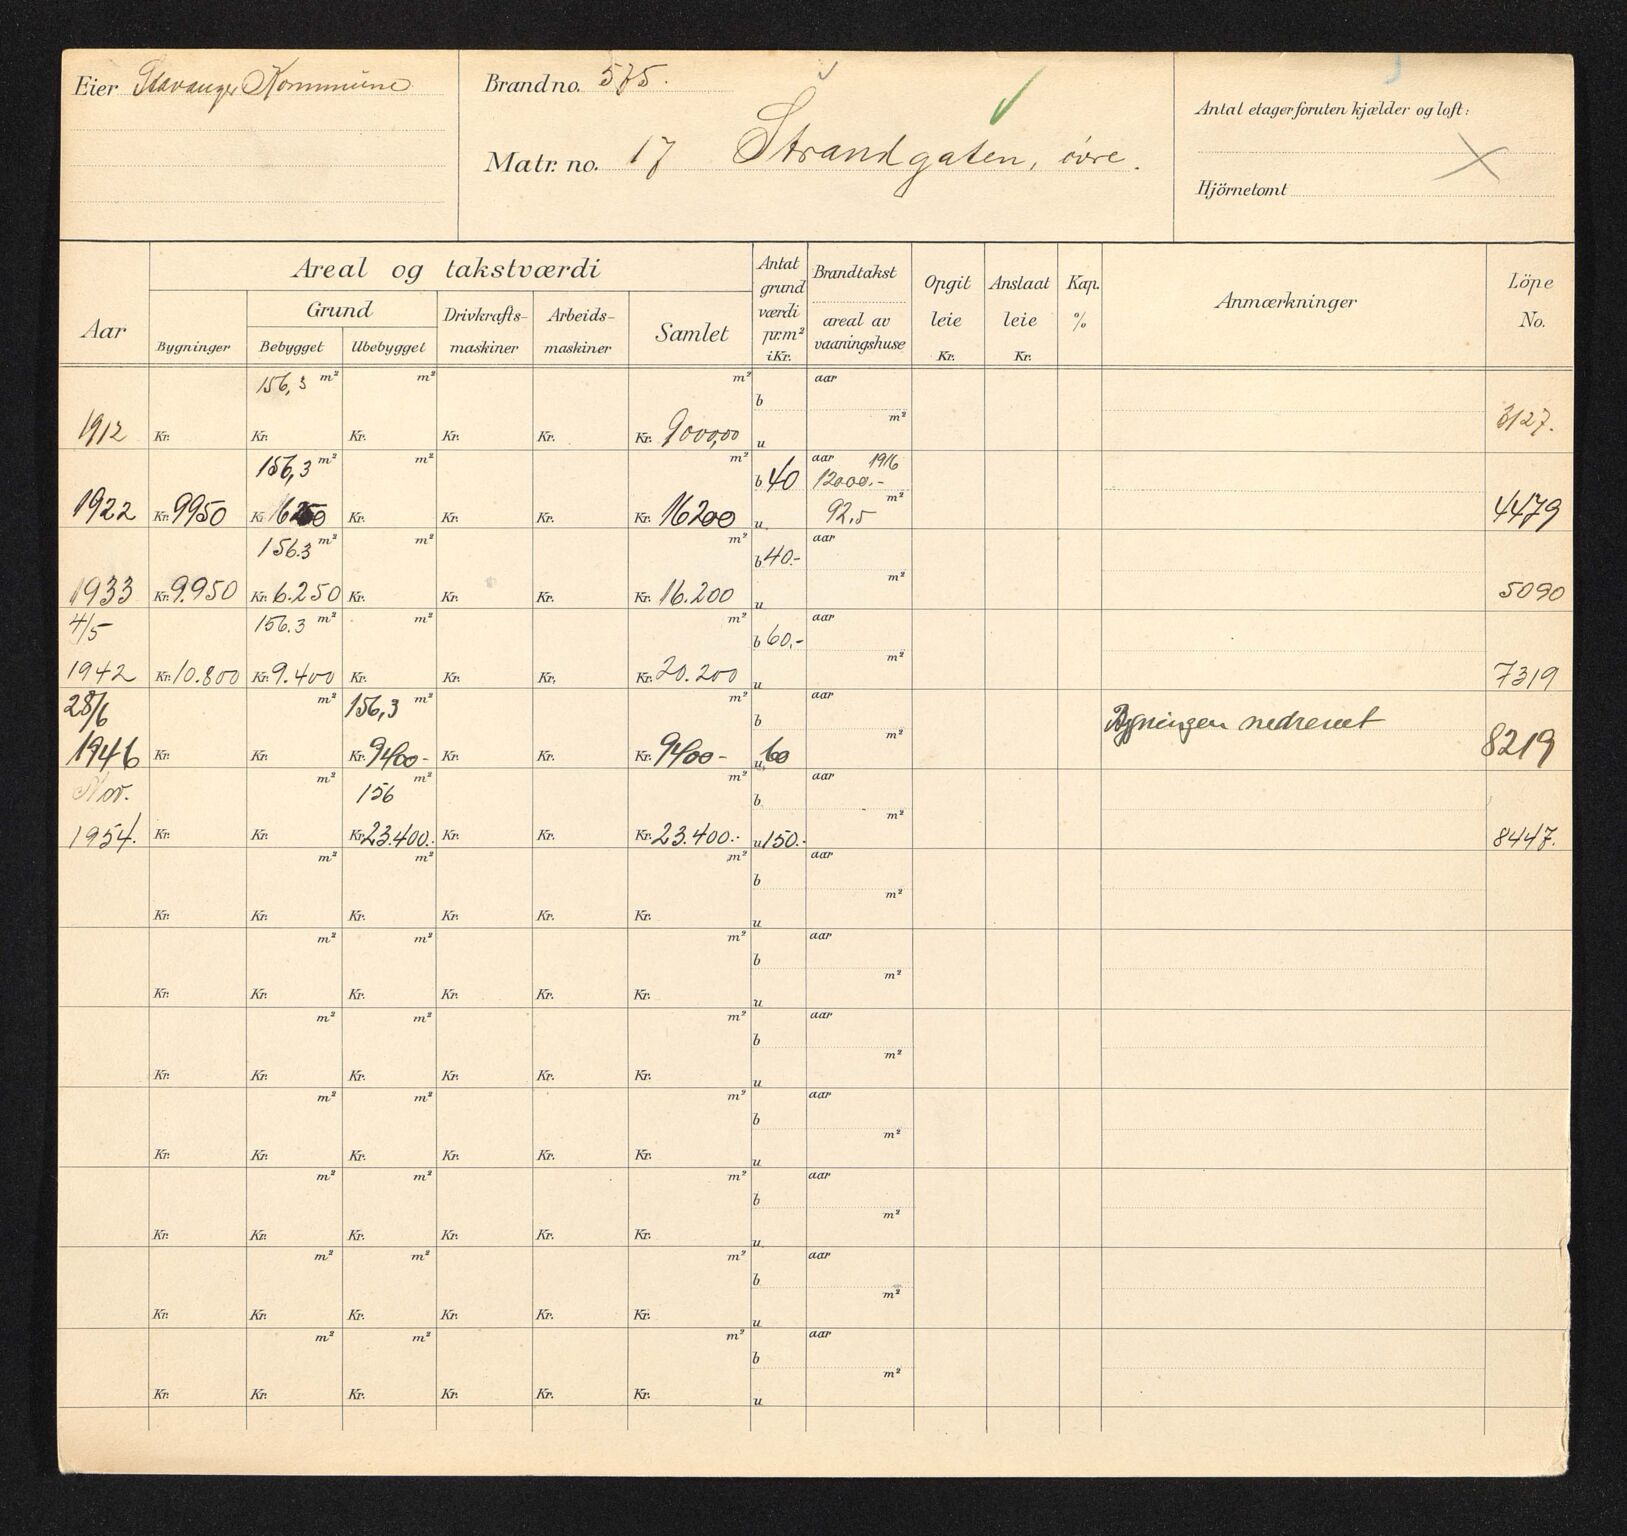 Eier Stavanger Kommune
Brand no. 575.
Matr. no. 17 Strandgaten, övre.
Antal etager foruten kjælder og loft:
Hjörnetomt
Aar
Areal og takstværdi
Grund
Bygninger
Bebygget
Ubebygget
Drivkrafts-
maskiner
Arbeids-
maskiner
Samlet
Antat
grund
værdi
pr.m²
i Kr.
Brandtakst
areal av
vaaningshuse
Opgit
leie
Kr.
Anslaat
leie
Kr.
Kap.
%
Anmærkninger
Löpe
No.
156,3 m² m² m² b aar
m²
1912 Kr. Kr. Kr. Kr. Kr. Kr. 9000,00 u 3127.
156,3 m² m² m² b 40 aar 1916
12000.-
m²
1922 Kr. 9950 Kr. Kr. Kr. Kr. Kr. 16200 u 92,5 4479
156.3 m² m² m² b 40.- aar
m²
1933 Kr. 9.950 Kr. 6.250 Kr. Kr. Kr. Kr. 16.200 u 5090
4/5 156.3 m² m² m² b 60,- aar
m²
1942 Kr. 10.800 Kr. 9.400 Kr. Kr. Kr. Kr. 20.200 u 7319
28/6 m² 156,3 m² m² b aar Bygningen nedrevet
m²
1946 Kr. Kr. Kr. 9400- Kr. Kr. Kr. 9400- u 60 8219
Nov. m² 156 m² m² b aar
m²
1954. Kr. Kr. Kr. 23.400.- Kr. Kr. Kr. 23.400.- u 150.- 8447.
m² m² m² b aar
m²
Kr. Kr. Kr. Kr. Kr. Kr. u
m² m² m² b aar
m²
Kr. Kr. Kr. Kr. Kr. Kr. u
m² m² m² b aar
m²
Kr. Kr. Kr. Kr. Kr. Kr. u
m² m² m² b aar
m²
Kr. Kr. Kr. Kr. Kr. Kr. u
m² m² m² b aar
m²
Kr. Kr. Kr. Kr. Kr. Kr. u
m² m² m² b aar
m²
Kr. Kr. Kr. Kr. Kr. Kr. u
m² m² m² b aar
m²
Kr. Kr. Kr. Kr. Kr. Kr. u